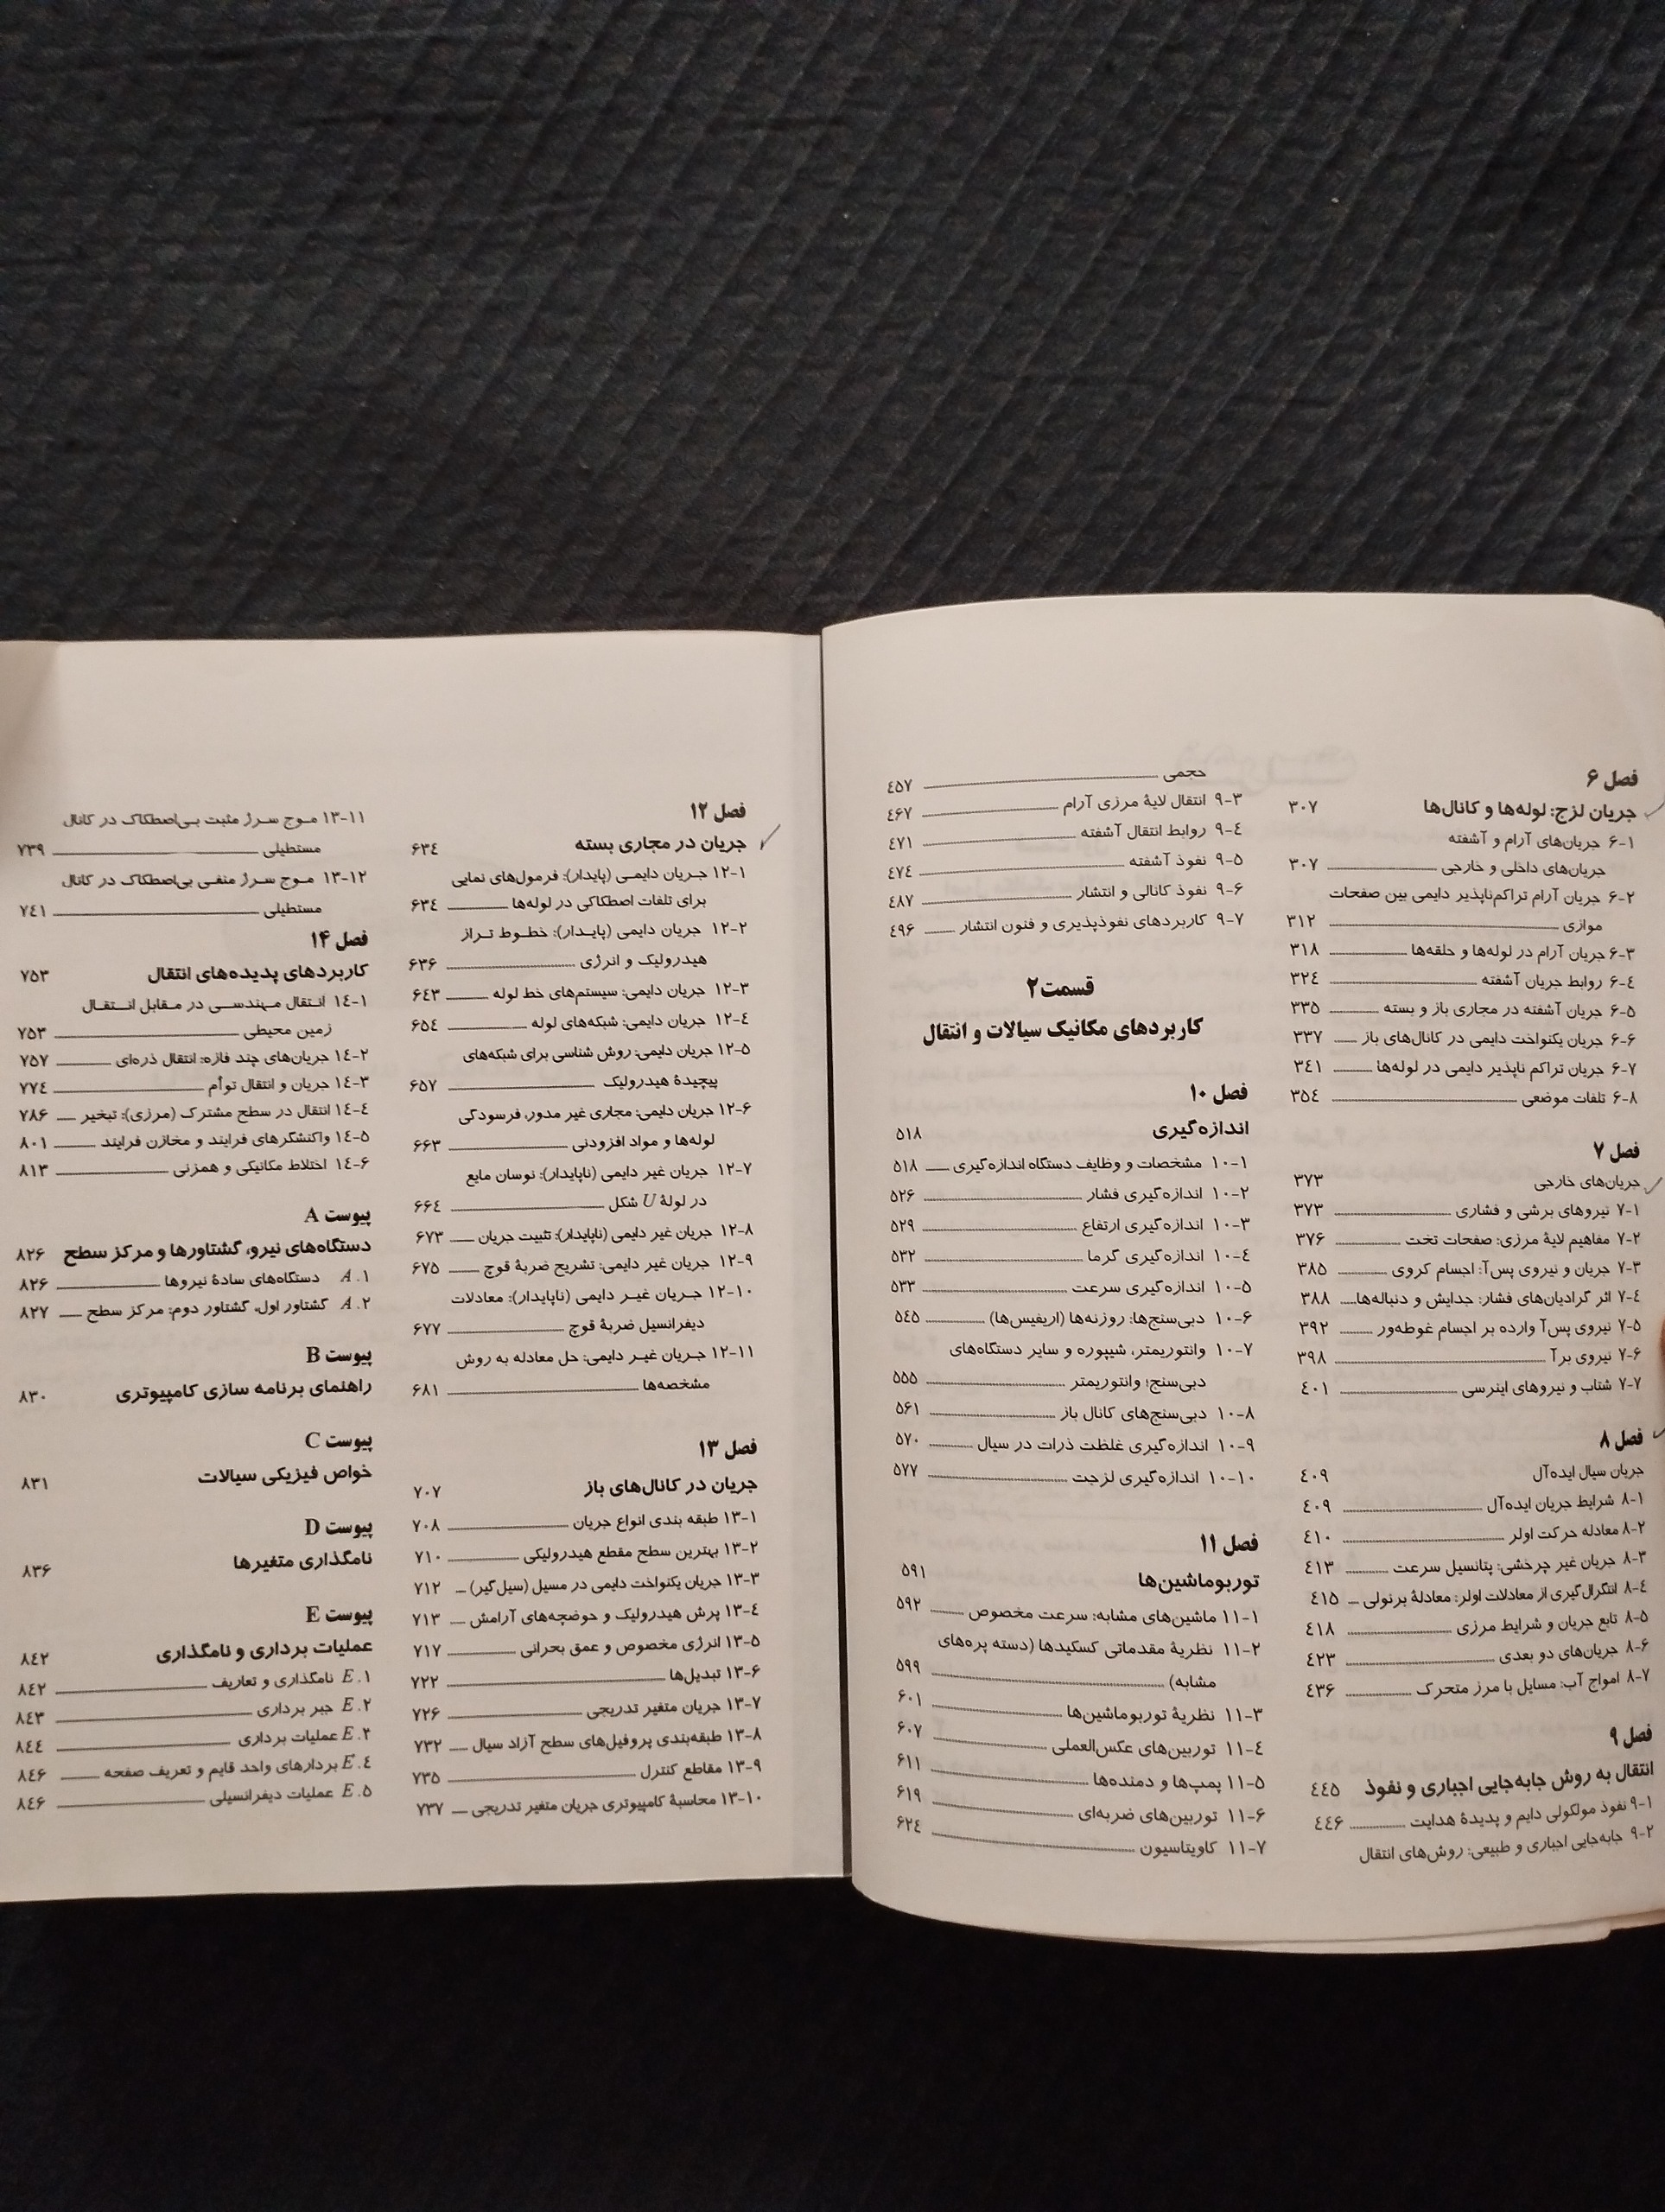 فصل ۶
جریان لزج: لوله‌ها و کانال‌ها ۳۰۷
۶-۱ جریان‌های آرام و آشفته
جریان‌های داخلی و خارجی ۳۰۷
۶-۲ جریان آرام تراکم‌ناپذیر دایمی بین صفحات
موازی ۳۱۲
۶-۳ جریان آرام در لوله‌ها و حلقه‌ها ۳۱۸
۶-٤ روابط جریان آشفته ۳۲٤
۶-۵ جریان آشفته در مجاری باز و بسته ۳۳۵
۶-۶ جریان یکنواخت دایمی در کانال‌های باز ۳۳۷
۶-۷ جریان تراکم ناپذیر دایمی در لوله‌ها ۳٤۱
۶-۸ تلفات موضعی ۳۵٤
فصل ۷
جریان‌های خارجی ۳۷۳
۷-۱ نیروهای برشی و فشاری ۳۷۳
۷-۲ مفاهیم لایۀ مرزی: صفحات تخت ۳۷۶
۷-۳ جریان و نیروی پس‌آ: اجسام کروی ۳۸۵
۷-٤ اثر گرادیان‌های فشار: جدایش و دنباله‌ها ۳۸۸
۷-۵ نیروی پس‌آ وارده بر اجسام غوطه‌ور ۳۹۲
۷-۶ نیروی برآ ۳۹۸
۷-۷ شتاب و نیروهای اینرسی ٤۰۱
فصل ۸
جریان سیال ایده‌آل ٤۰۹
۸-۱ شرایط جریان ایده‌آل ٤۰۹
۸-۲ معادله حرکت اولر ٤۱۰
۸-۳ جریان غیر چرخشی: پتانسیل سرعت ٤۱۳
۸-٤ انتگرال‌گیری از معادلات اولر: معادلۀ برنولی ٤۱۵
۸-۵ تابع جریان و شرایط مرزی ٤۱۸
۸-۶ جریان‌های دو بعدی ٤۲۳
۸-۷ امواج آب: مسایل با مرز متحرک ٤۳۶
فصل ۹
انتقال به روش جابه‌جایی اجباری و نفوذ ٤٤۵
۹-۱ نفوذ مولکولی دایم و پدیدۀ هدایت ٤٤۶
۹-۲ جابه‌جایی اجباری و طبیعی: روش‌های انتقال
حجمی ٤۵۷
۹-۳ انتقال لایۀ مرزی آرام ٤۶۷
۹-٤ روابط انتقال آشفته ٤۷۱
۹-۵ نفوذ آشفته ٤۷٤
۹-۶ نفوذ کانالی و انتشار ٤۸۷
۹-۷ کاربردهای نفوذپذیری و فنون انتشار ٤۹۶
قسمت ۲
کاربردهای مکانیک سیالات و انتقال
فصل ۱۰
اندازه‌گیری ۵۱۸
۱۰-۱ مشخصات و وظایف دستگاه اندازه‌گیری ۵۱۸
۱۰-۲ اندازه‌گیری فشار ۵۲۶
۱۰-۳ اندازه‌گیری ارتفاع ۵۲۹
۱۰-٤ اندازه‌گیری گرما ۵۳۲
۱۰-۵ اندازه‌گیری سرعت ۵۳۳
۱۰-۶ دبی‌سنج‌ها: روزنه‌ها (اریفیس‌ها) ۵٤۵
۱۰-۷ وانتوریمتر، شیپوره و سایر دستگاه‌های
دبی‌سنج؛ وانتوریمتر ۵۵۵
۱۰-۸ دبی‌سنج‌های کانال باز ۵۶۱
۱۰-۹ اندازه‌گیری غلظت ذرات در سیال ۵۷۰
۱۰-۱۰ اندازه‌گیری لزجت ۵۷۷
فصل ۱۱
توربوماشین‌ها ۵۹۱
۱۱-۱ ماشین‌های مشابه: سرعت مخصوص ۵۹۲
۱۱-۲ نظریۀ مقدماتی کسکیدها (دسته پره‌های
مشابه) ۵۹۹
۱۱-۳ نظریۀ توربوماشین‌ها ۶۰۱
۱۱-٤ توربین‌های عکس‌العملی ۶۰۷
۱۱-۵ پمپ‌ها و دمنده‌ها ۶۱۱
۱۱-۶ توربین‌های ضربه‌ای ۶۱۹
۱۱-۷ کاویتاسیون ۶۲٤
فصل ۱۲
جریان در مجاری بسته ۶۳٤
۱۲-۱ جریان دایمی (پایدار): فرمول‌های نمایی
برای تلفات اصطکاکی در لوله‌ها ۶۳٤
۱۲-۲ جریان دایمی (پایدار): خطوط تراز
هیدرولیک و انرژی ۶۳۶
۱۲-۳ جریان دایمی: سیستم‌های خط لوله ۶٤۳
۱۲-٤ جریان دایمی: شبکه‌های لوله ۶۵٤
۱۲-۵ جریان دایمی: روش شناسی برای شبکه‌های
پیچیدۀ هیدرولیک ۶۵۷
۱۲-۶ جریان دایمی: مجاری غیر مدور، فرسودگی
لوله‌ها و مواد افزودنی ۶۶۳
۱۲-۷ جریان غیر دایمی (ناپایدار): نوسان مایع
در لولۀ U شکل ۶۶٤
۱۲-۸ جریان غیر دایمی (ناپایدار): تثبیت جریان ۶۷۳
۱۲-۹ جریان غیر دایمی: تشریح ضربۀ قوچ ۶۷۵
۱۲-۱۰ جریان غیر دایمی (ناپایدار): معادلات
دیفرانسیل ضربۀ قوچ ۶۷۷
۱۲-۱۱ جریان غیر دایمی: حل معادله به روش
مشخصه‌ها ۶۸۱
فصل ۱۳
جریان در کانال‌های باز ۷۰۷
۱۳-۱ طبقه بندی انواع جریان ۷۰۸
۱۳-۲ بهترین سطح مقطع هیدرولیکی ۷۱۰
۱۳-۳ جریان یکنواخت دایمی در مسیل (سیل‌گیر) ۷۱۲
۱۳-٤ پرش هیدرولیک و حوضچه‌های آرامش ۷۱۳
۱۳-۵ انرژی مخصوص و عمق بحرانی ۷۱۷
۱۳-۶ تبدیل‌ها ۷۲۲
۱۳-۷ جریان متغیر تدریجی ۷۲۶
۱۳-۸ طبقه‌بندی پروفیل‌های سطح آزاد سیال ۷۳۲
۱۳-۹ مقاطع کنترل ۷۳۵
۱۳-۱۰ محاسبۀ کامپیوتری جریان متغیر تدریجی ۷۳۷
۱۳-۱۱ موج سرژ مثبت بی‌اصطکاک در کانال
مستطیلی ۷۳۹
۱۳-۱۲ موج سرژ منفی بی‌اصطکاک در کانال
مستطیلی ۷٤۱
فصل ۱۴
کاربردهای پدیده‌های انتقال ۷۵۳
۱٤-۱ انتقال مهندسی در مقابل انتقال
زمین محیطی ۷۵۳
۱٤-۲ جریان‌های چند فازه: انتقال ذره‌ای ۷۵۷
۱٤-۳ جریان و انتقال توأم ۷۷٤
۱٤-٤ انتقال در سطح مشترک (مرزی): تبخیر ۷۸۶
۱٤-۵ واکنشگرهای فرایند و مخازن فرایند ۸۰۱
۱٤-۶ اختلاط مکانیکی و همزنی ۸۱۳
پیوست A
دستگاه‌های نیرو، گشتاورها و مرکز سطح ۸۲۶
A .۱ دستگاه‌های سادۀ نیروها ۸۲۶
A .۲ گشتاور اول، گشتاور دوم: مرکز سطح ۸۲۷
پیوست B
راهنمای برنامه سازی کامپیوتری ۸۳۰
پیوست C
خواص فیزیکی سیالات ۸۳۱
پیوست D
نامگذاری متغیرها ۸۳۶
پیوست E
عملیات برداری و نامگذاری ۸٤۲
E .۱ نامگذاری و تعاریف ۸٤۲
E .۲ جبر برداری ۸٤۳
E .۳ عملیات برداری ۸٤٤
E .٤ بردارهای واحد قایم و تعریف صفحه ۸٤۶
E .۵ عملیات دیفرانسیلی ۸٤۶